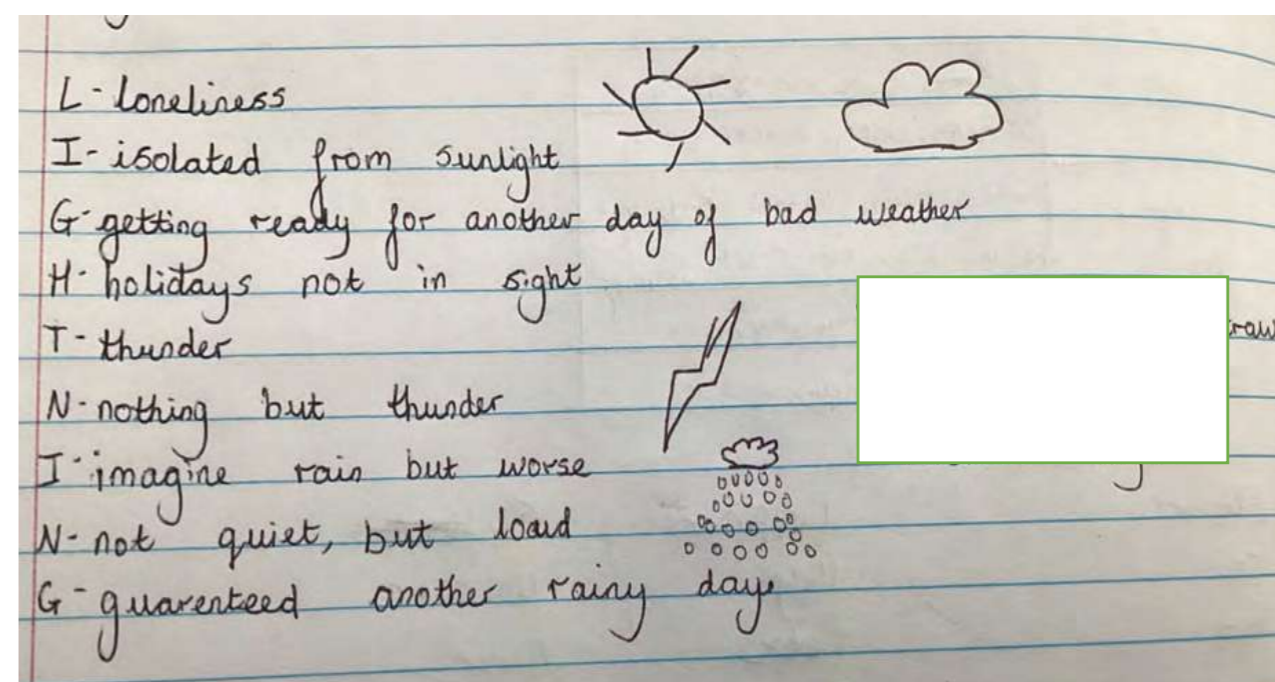 L- loneliness
I- isolated from sunlight
G- getting ready for another day of bad weather
H- holidays not in sight
T- thunder
N- nothing but thunder
I- imagine rain but worse
N- not quiet, but loud
G- guarenteed another rainy day.